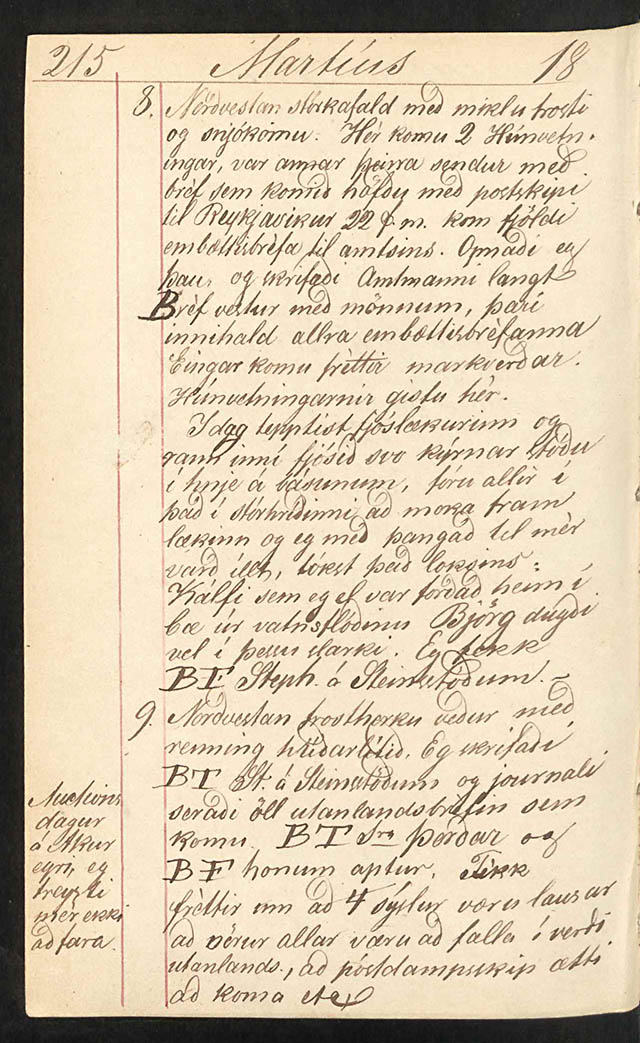 215 Martíus 18
8. Nordvestan stórkafald med miklu frosti
og snjókomu. Hér komu 2 Húnvetn-
ingar, var annar þeirra sendur med
bréf sem komid höfdu med postskipi
til Reykjavíkur 22 f.m. kom fjöldi
embættisbréfa til amtsins. Opnadi eg
þau, og skrifadi Amtmanni langt
Bréf vestur med mönnum, þarí
innihald allra embættisbréfanna
Eingar komu fréttir markverdar.
Húnvetningarnir gistu hér.
Idag tepptist fjóslækurinn og
rann inní fjósid svo kýrnar stódu
i hnje á básunum, fóru allir í
þad í stórhrídinni ad moka fram
lækinn og eg med þangad til mér
vard illt, tókst þad loksins:
Kálfi sem eg el var fordad heim í
bæ úr vatnsflódinu Björg dugdi
vel í þessu slarki. Eg fekk
BF Steph. á Steinstödum. –
9. Nordvestan frostherku vedur med
renning hrídarlítid. Eg skrifadi
BT St. á Steinstödum og journali
seradi öll utanlandsbréfin sem
komu. BT Sra Þórdar og
BF honum aptur. Fékk
fréttir um ad 4 sýslur væru lausar
ad vörur allar væru ad falla í verdi
utanlands, ad póstdampskip ætti
ad koma etc
Auctions
dagur
á Akur
eyri, eg
treysti
mér ekki
ad fara.